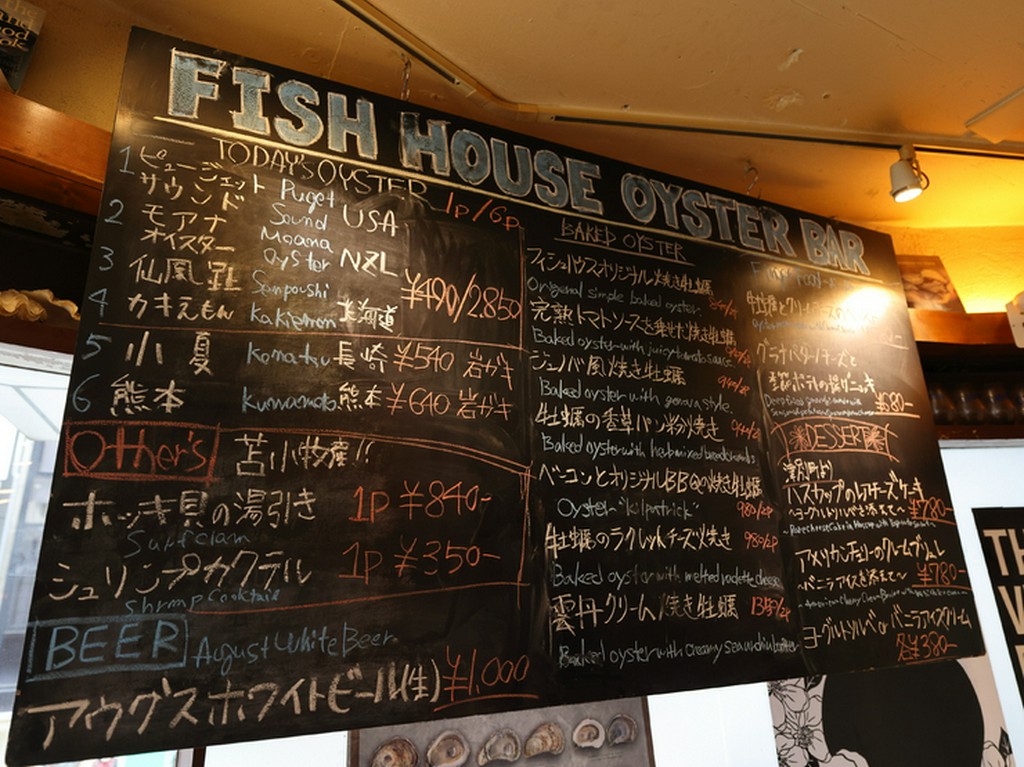 FISH HOUSE OYSTER BAR
TODAY'S OYSTER 1p/6p
1 ピュージェット サウンド Puget Sound USA
2 モアナ オイスター Moana Oyster NZL
3 仙鳳趾 Senpoushi
¥490/2.850
4 カキえもん Kakiemon 北海道
5 小夏 Konatsu 長崎 ¥540 岩ガキ
6 熊本 Kumamoto 熊本 ¥640 岩ガキ
Other's 苫小牧産!!
ホッキ貝の湯引き 1P ¥840-
Surfclam
シュリンプカクテル 1P ¥350-
Shrimp Cocktail
BEER August White Beer
アウグスホワイトビール(生) ¥1,000
BAKED OYSTER
フィッシュハウスオリジナル焼き牡蠣
Original simple baked oyster.
完熟トマトソースを乗せた焼き牡蠣
Baked oyster with juicy tomato sauce.
ジェノバ風焼き牡蠣
Baked oyster with genova style.
牡蠣の香草パン粉焼き
Baked oyster with herb mixed breadcrumbs
ベーコンとオリジナルBBQの焼き牡蠣
Oyster "kilpatrick" 980/2P
牡蠣のラクレットチーズ焼き 980/2P
Baked oyster with melted raclette cheese
雲丹クリーム焼き牡蠣
Baked oyster with creamy sea urchin butter
¥580-
DESSERT
ハスカップのレアチーズケーキ
~ヨーグルトソルベを添えて~ ¥780-
アメリカンチェリーのクレームブリュレ
~バニラアイスを添えて~ ¥780-
ヨーグルトソルベ or バニラアイスクリーム
各¥380-